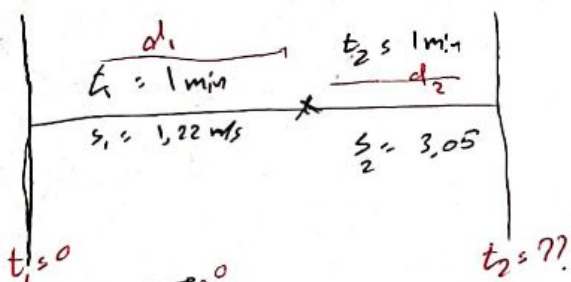 d₁
t₁ = 1 min
t₂ = 1 min
d₂
s₁ = 1,22 m/s
s₂ = 3,05
t₁ = 0
0
t₂ = ??